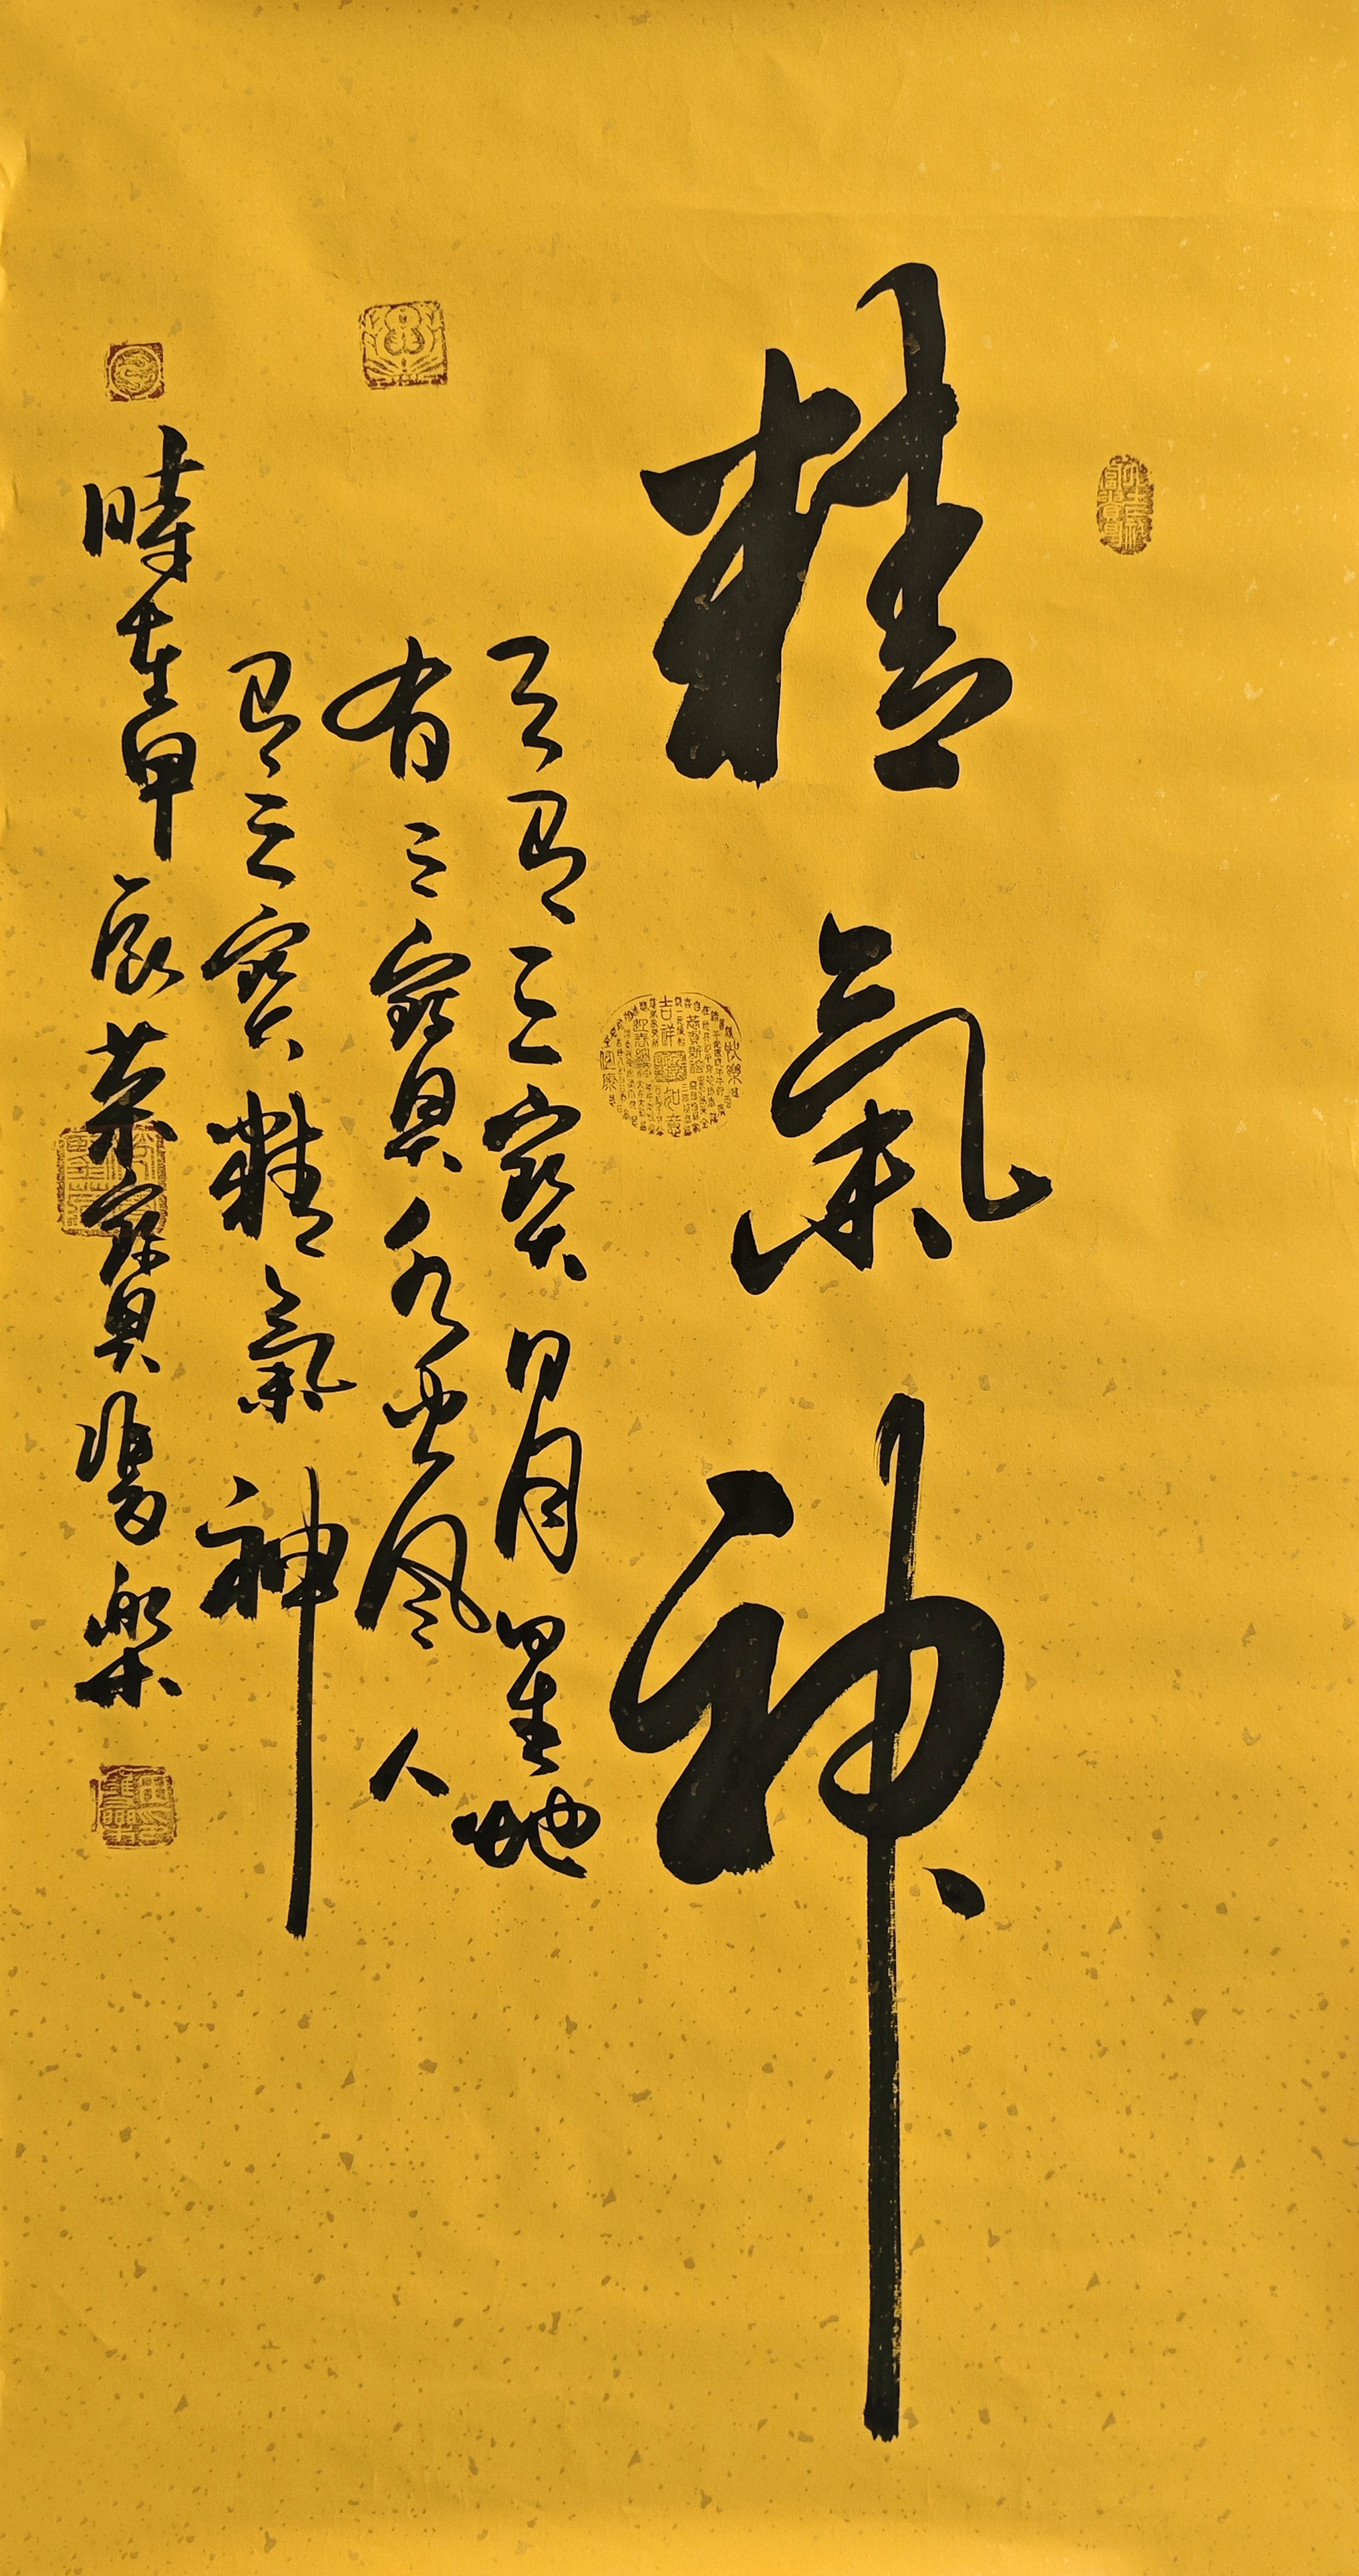 精氣神
天有三寶日月星地
有三寶水火風人
有三寶精氣神
時在甲辰菊寶隻樂